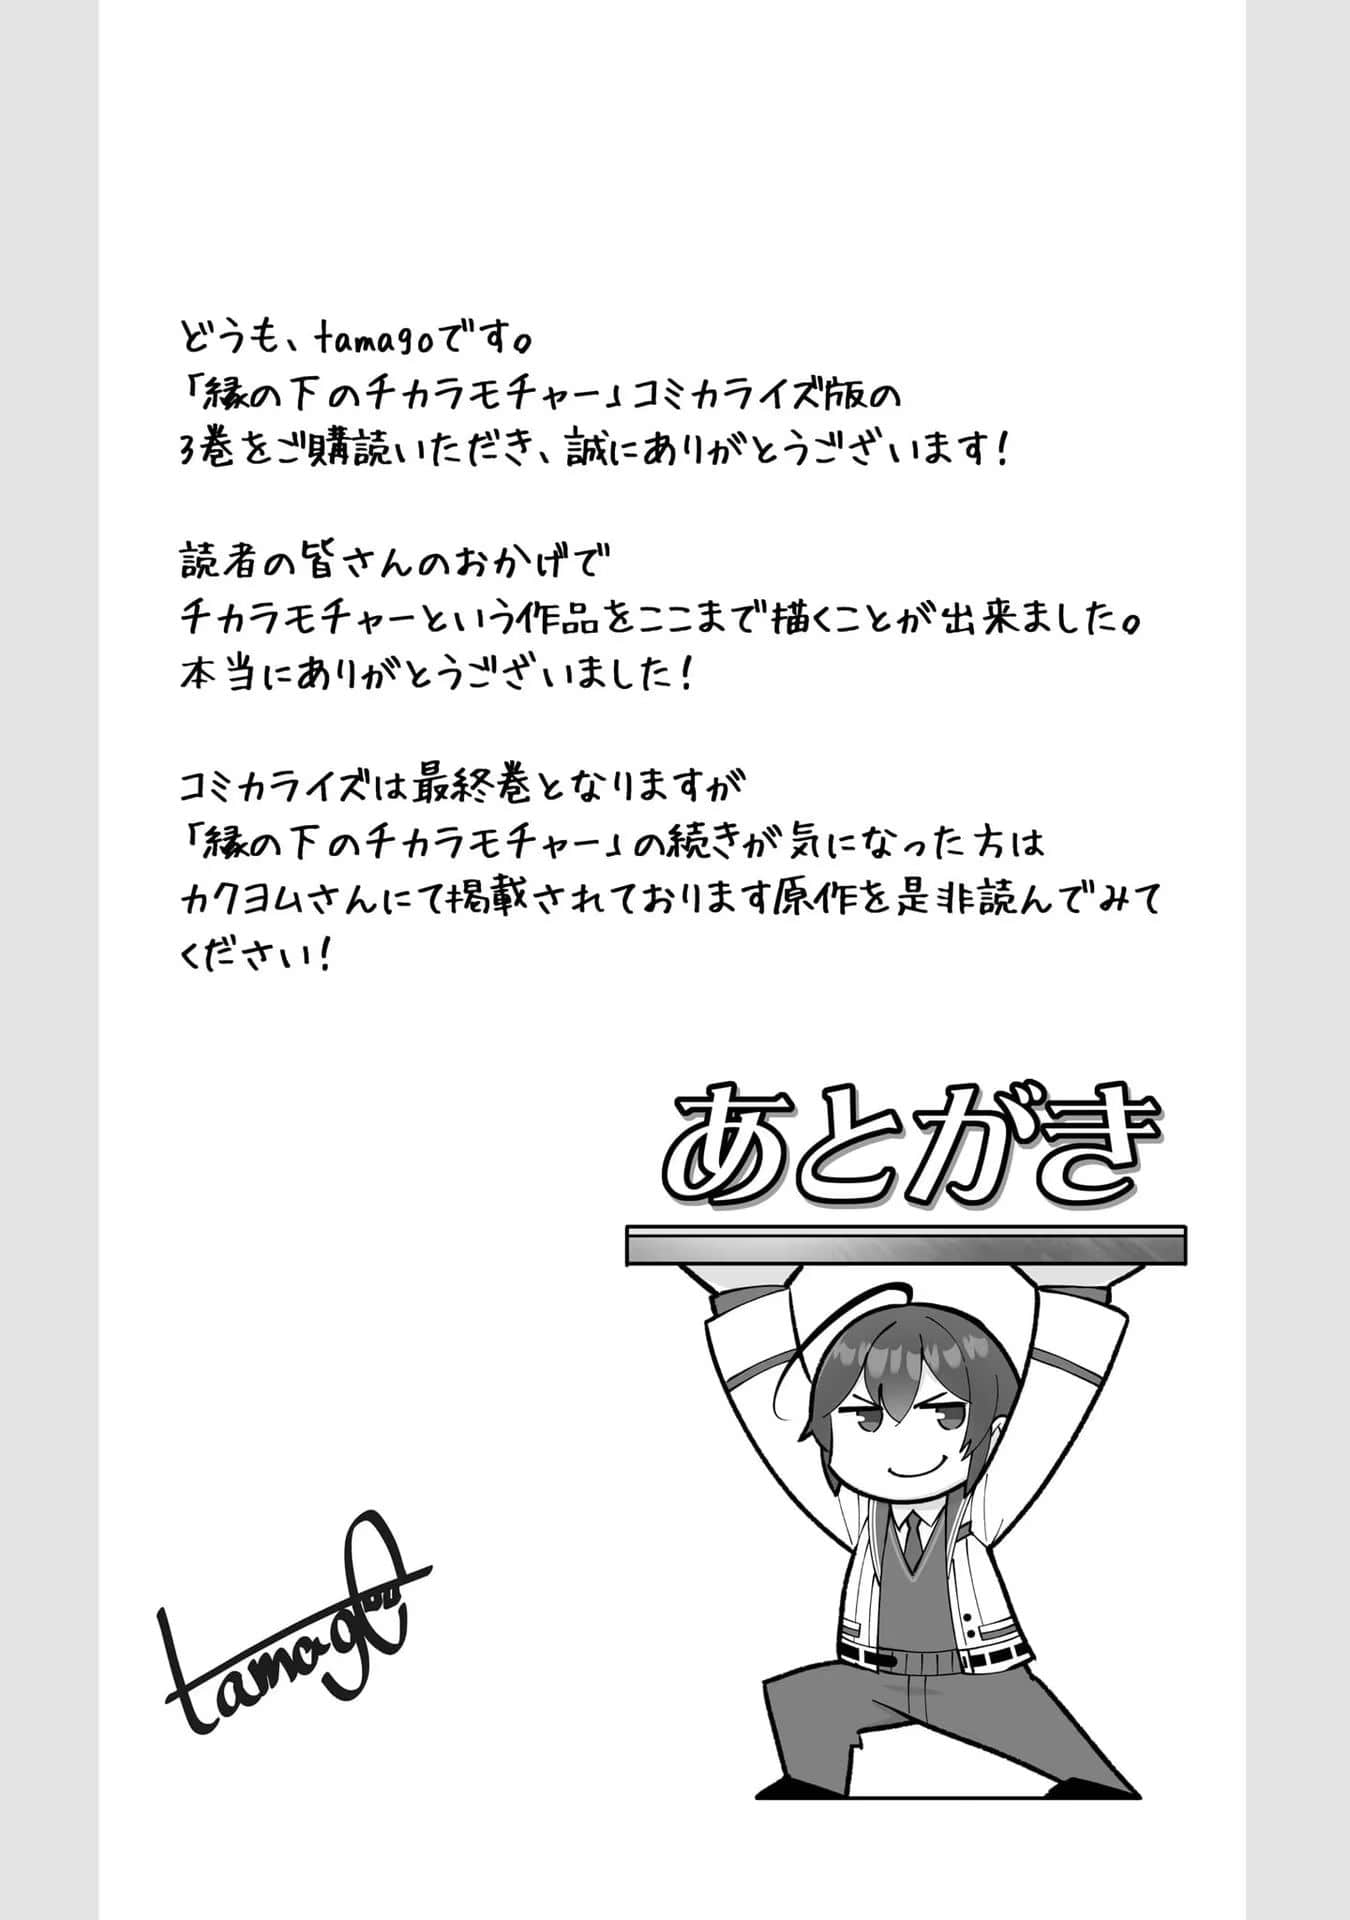 どうも、tamagoです。
「縁の下のチカラモチャー」コミカライズ版の
3巻をご購読いただき、誠にありがとうございます！
読者の皆さんのおかげで
チカラモチャーという作品をここまで描くことが出来ました。
本当にありがとうございました！
コミカライズは最終巻となりますが
「縁の下のチカラモチャー」の続きが気になった方は
カクヨムさんにて掲載されております原作を是非読んでみて
ください！
あとがき
tamago